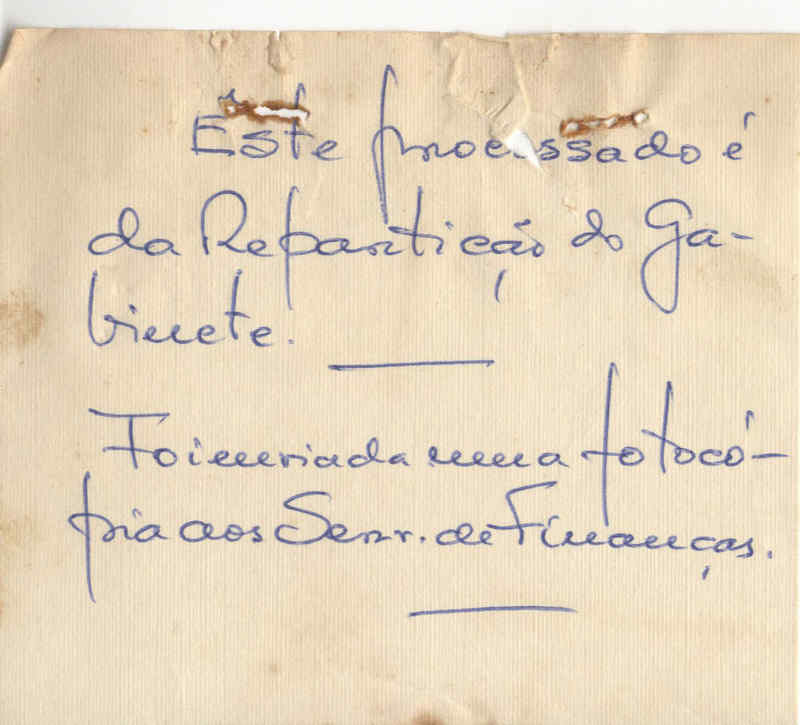 Êste processado é
da Repartição do Ga-
binete.
Foi enviada uma fotocó-
pia aos Serv. de Finanças.